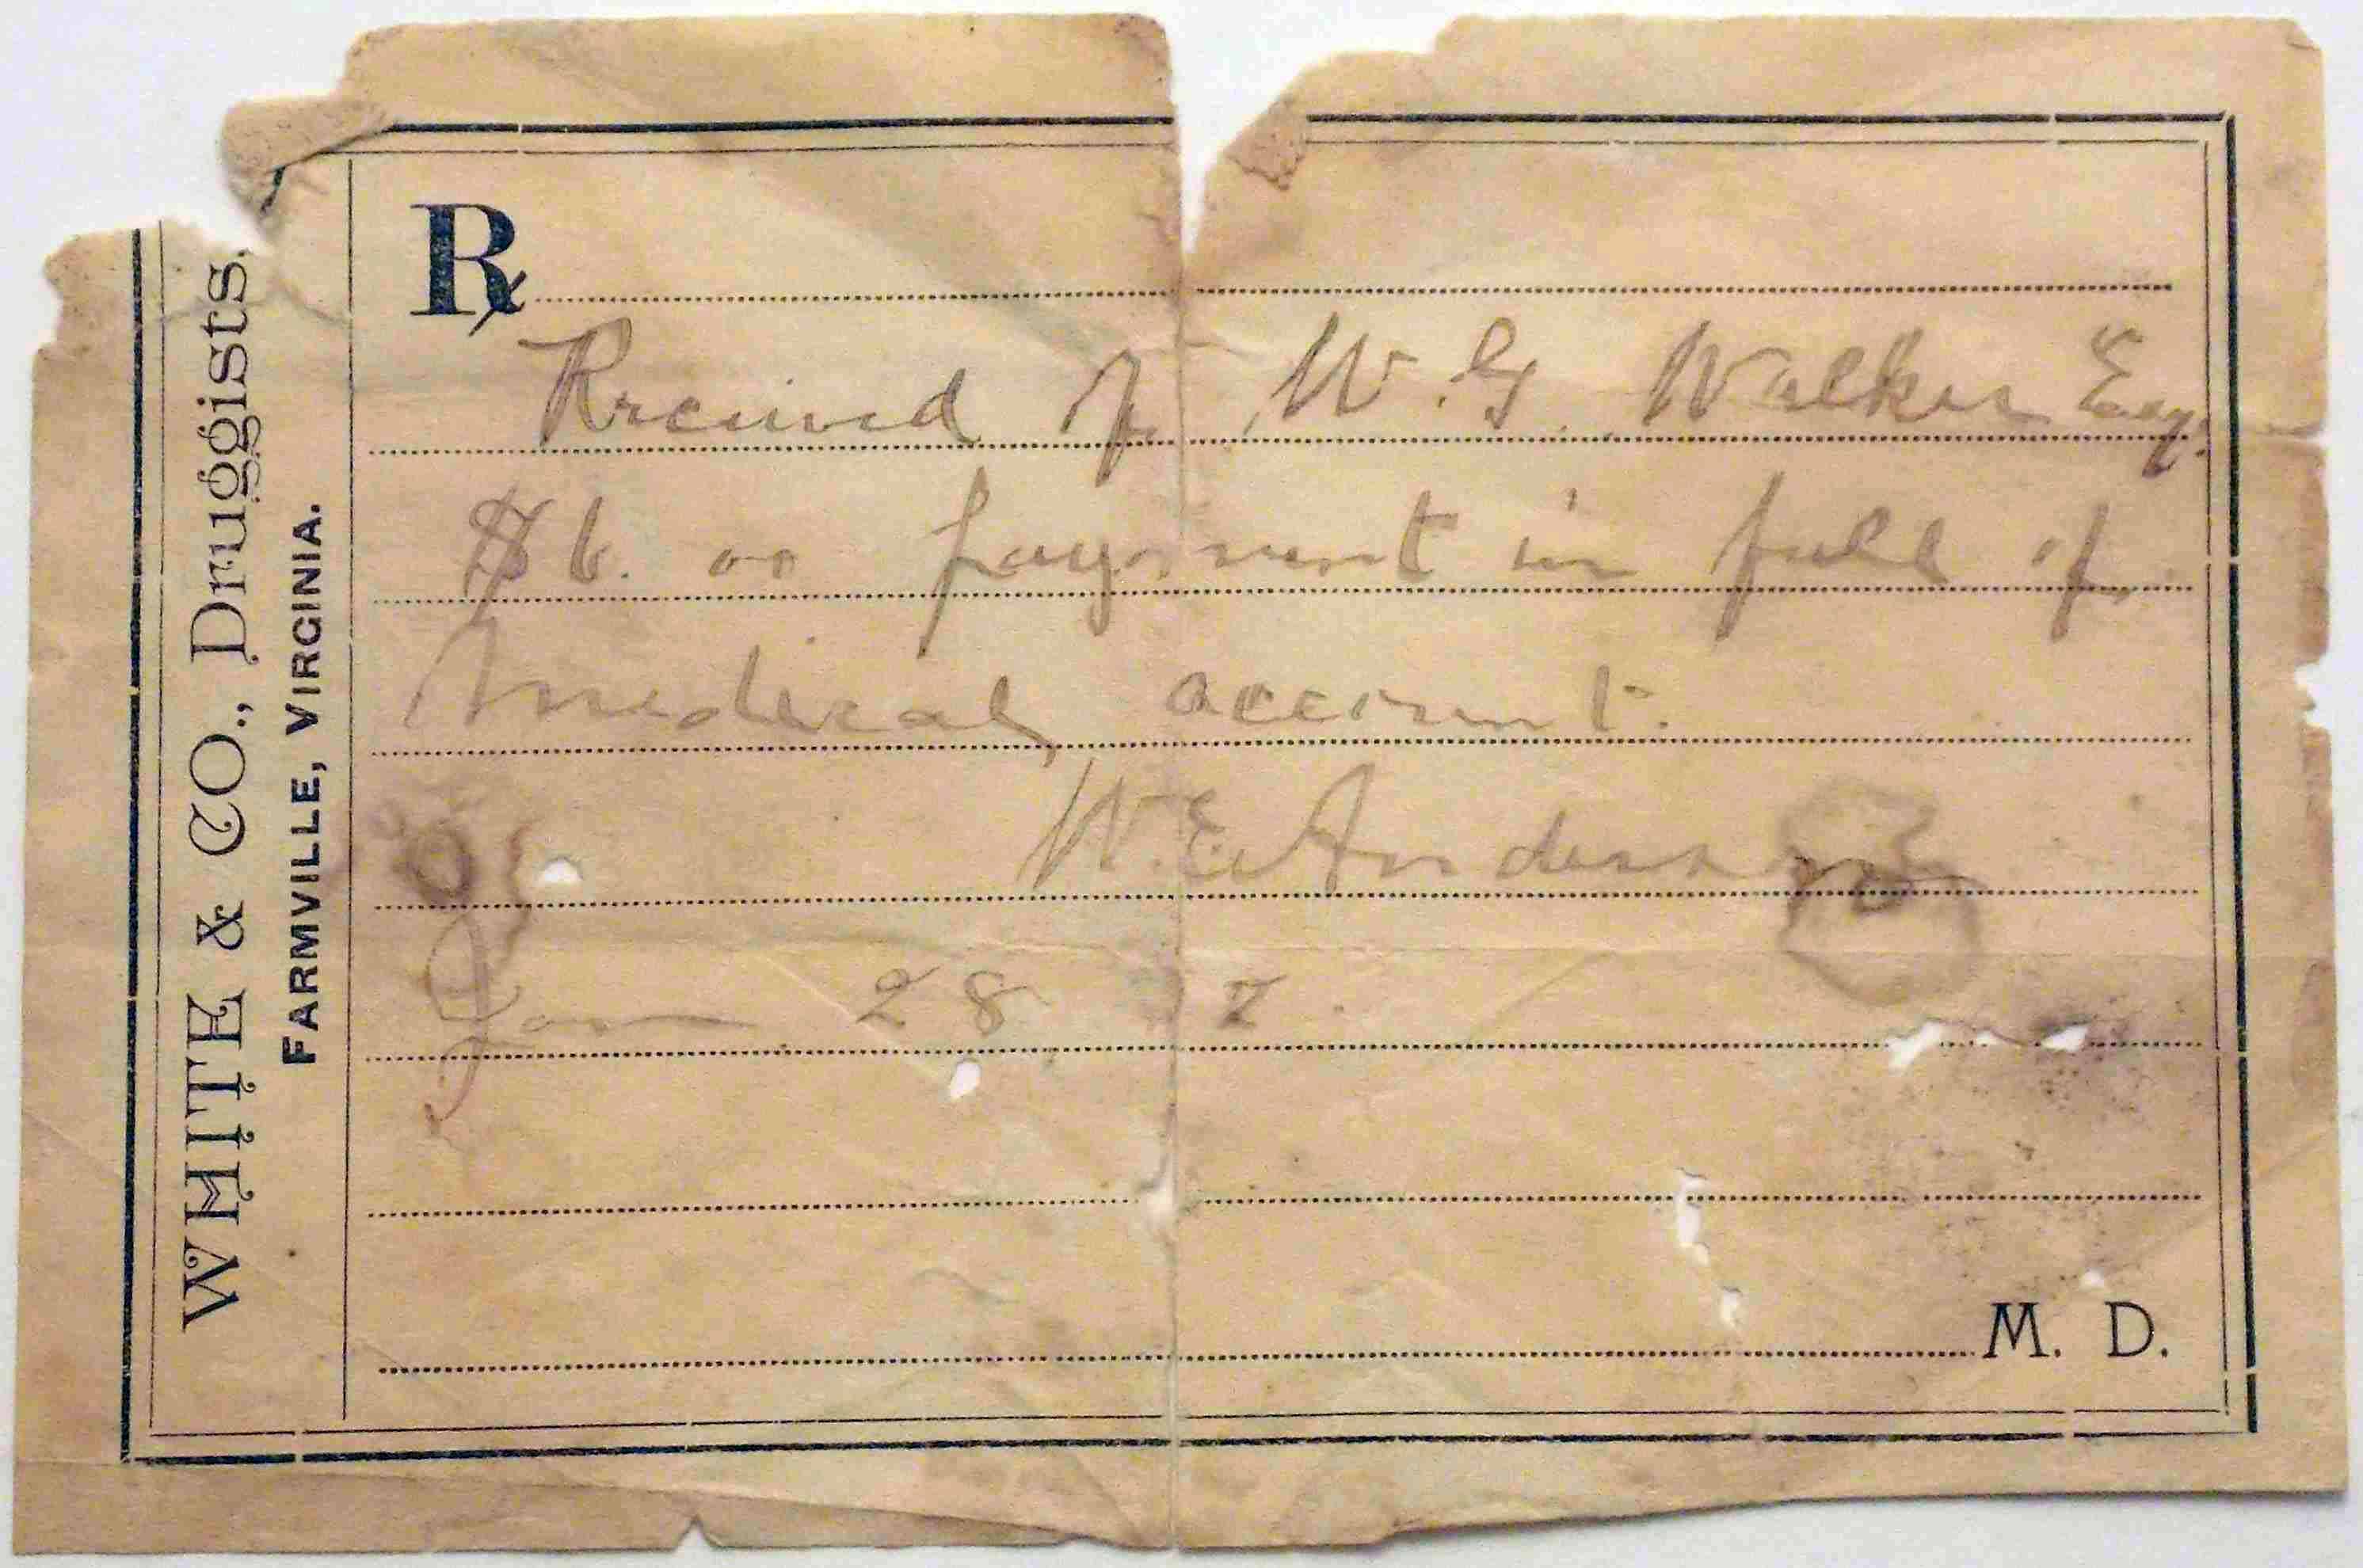 WHITE & CO., Druggists.
FARMVILLE, VIRGINIA.
℞
Received of W. G. Walker Esq.
$6. 00 payment in full of
medical account.
W. E. Anderson
Jan 28
M. D.